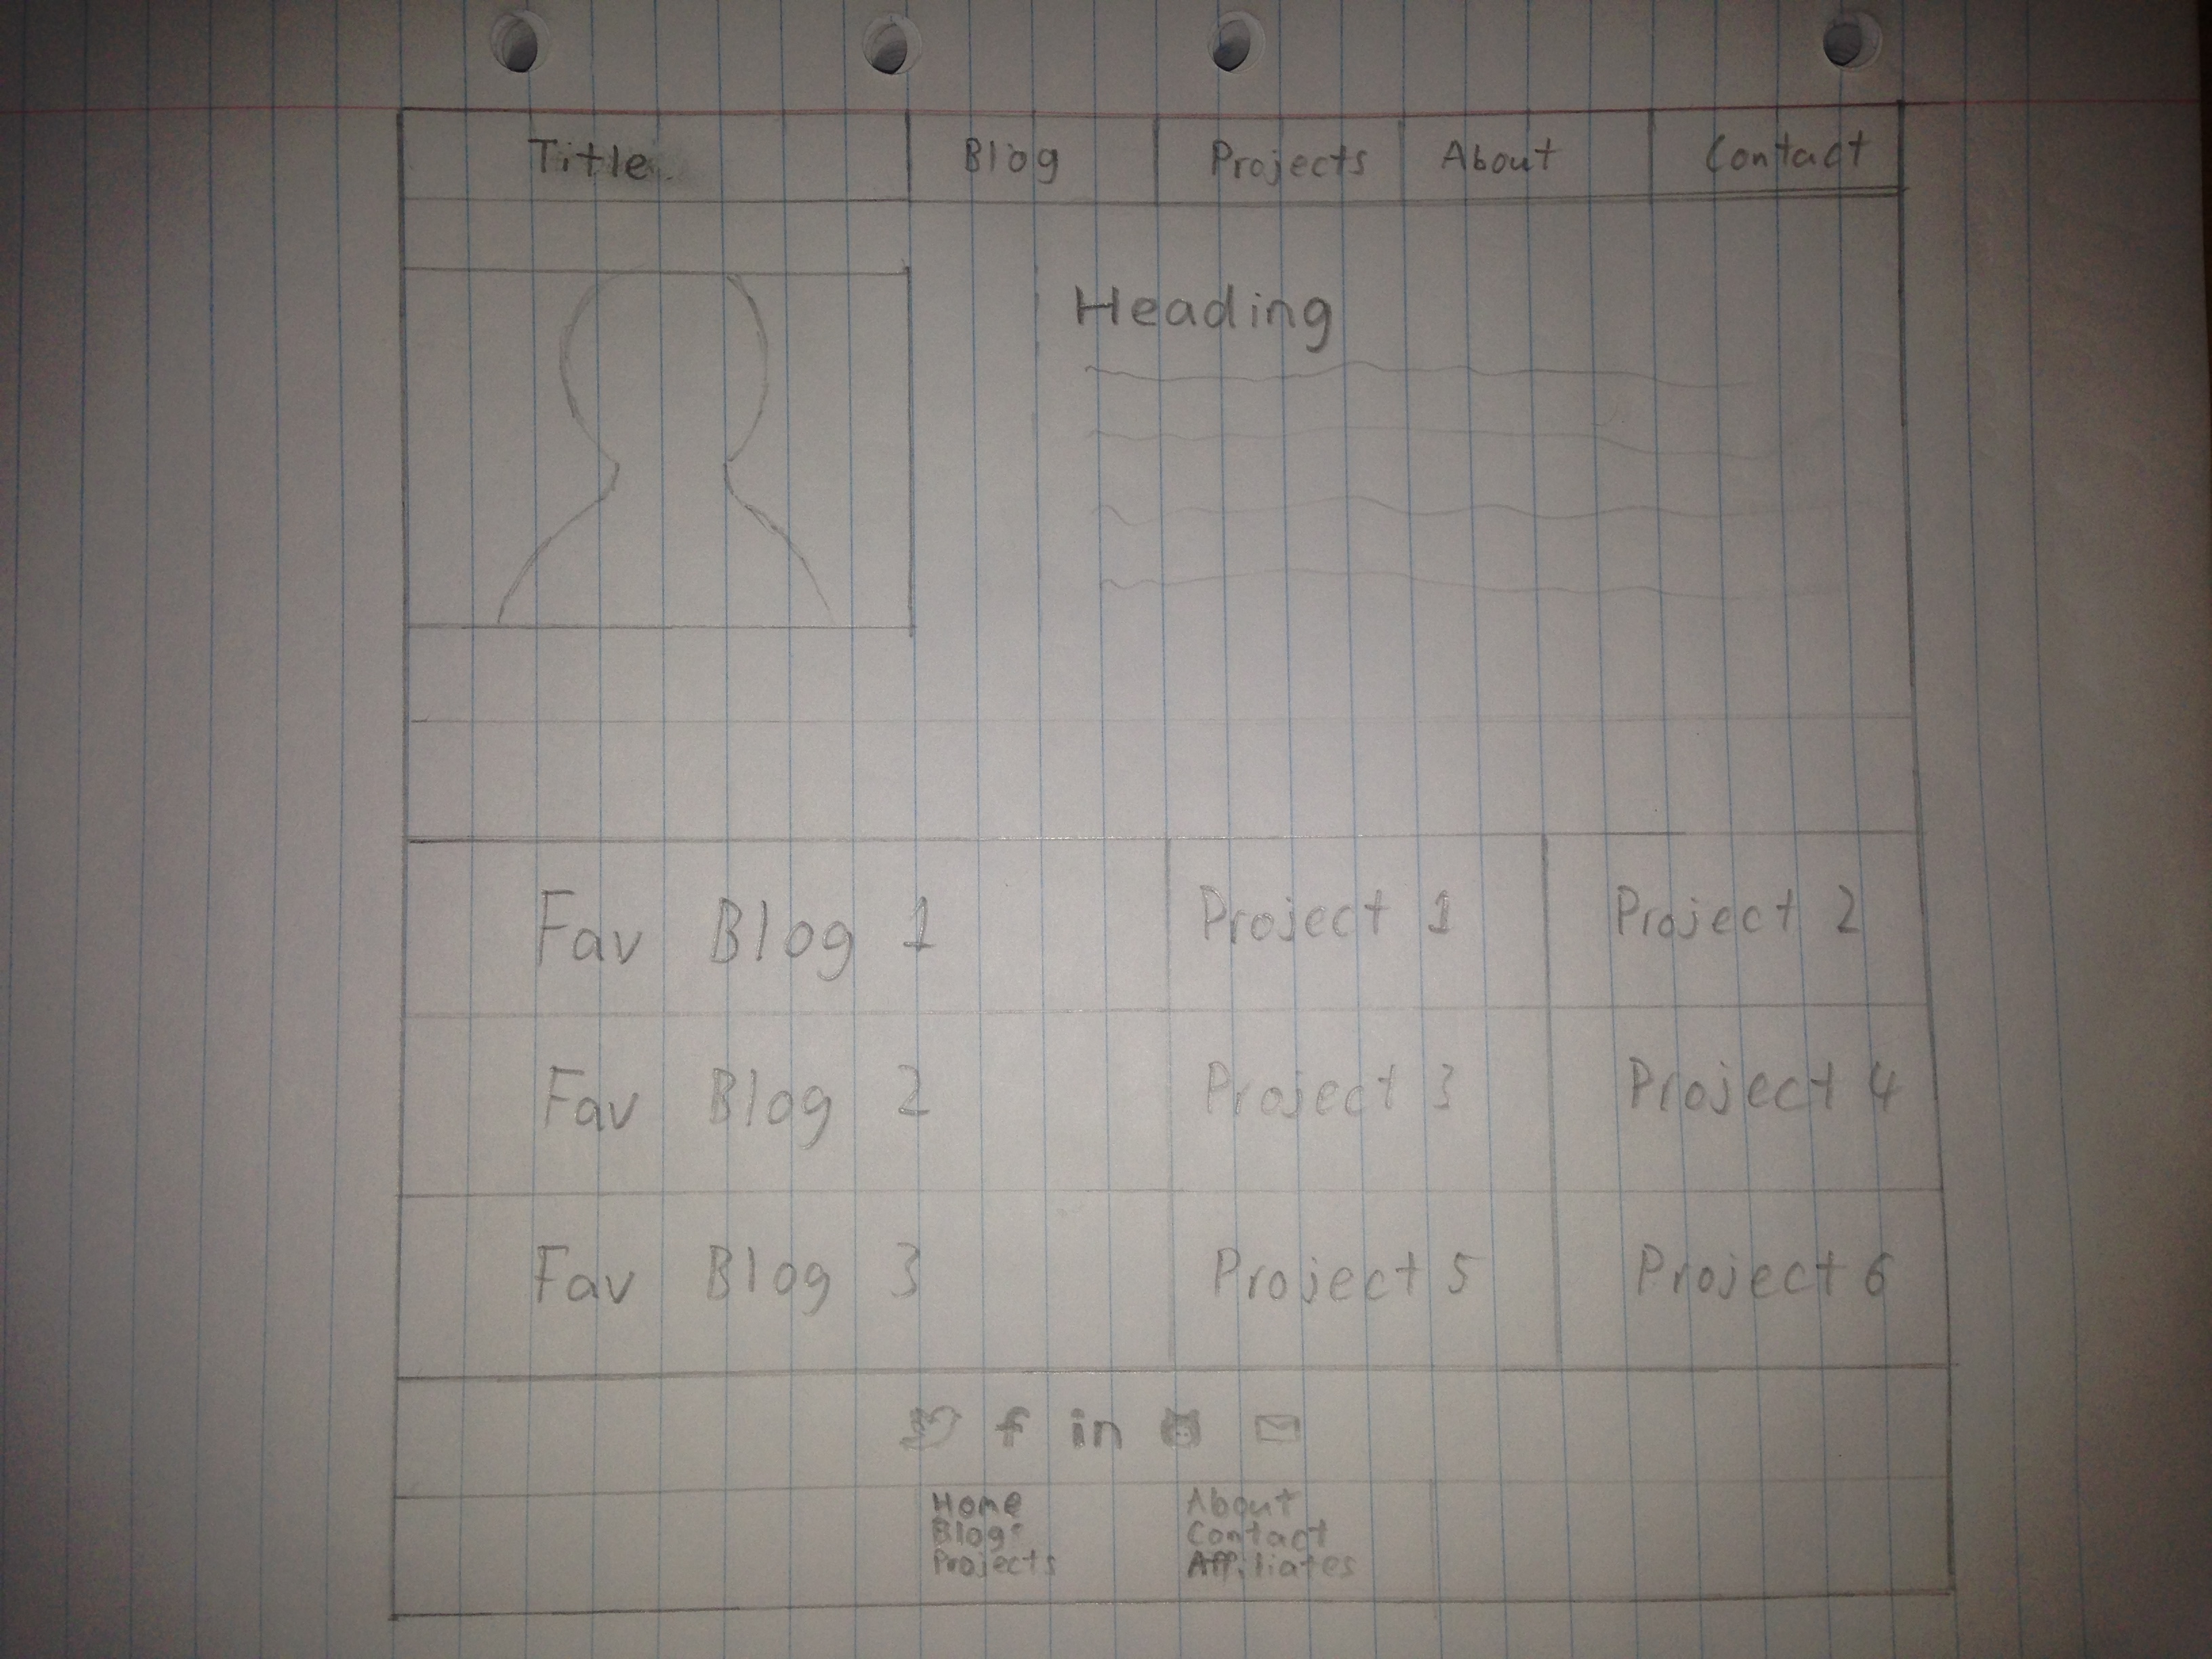 Title Blog Projects About Contact
Heading
Fav Blog 1 Project 1 Project 2
Fav Blog 2 Project 3 Project 4
Fav Blog 3 Project 5 Project 6
f in
Home About
Blog Contact
Projects Affiliates